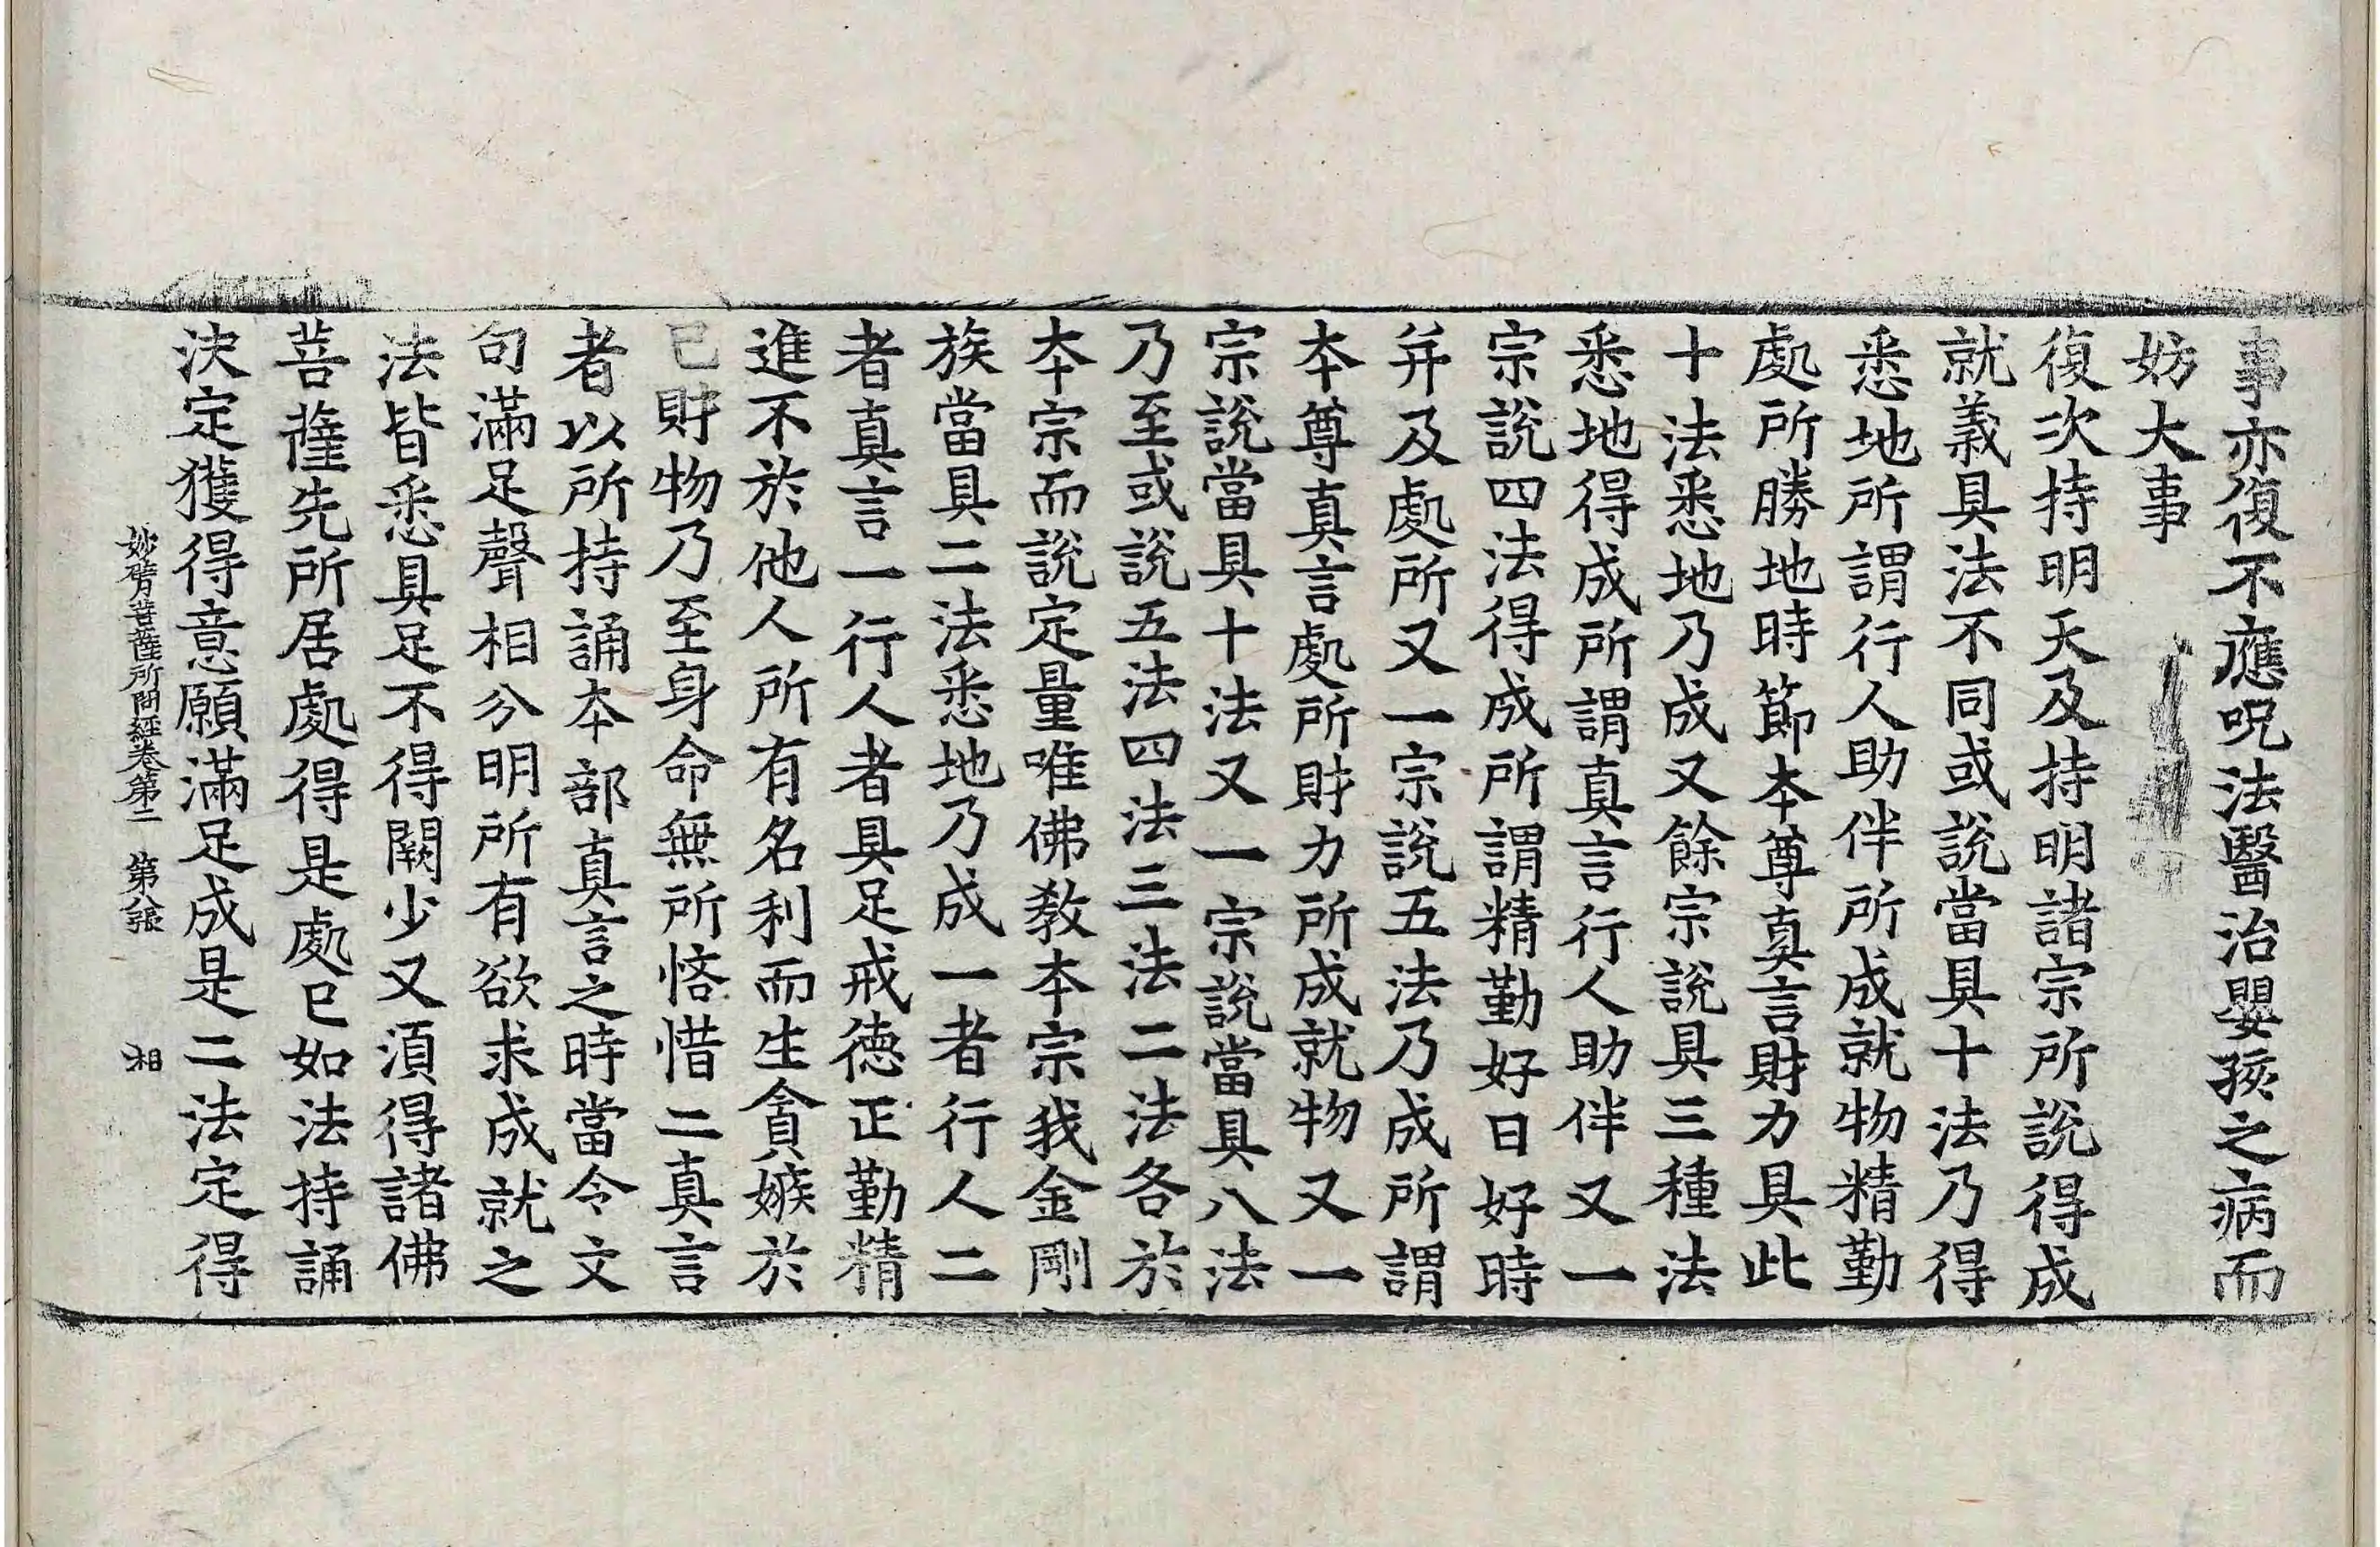 事亦復不應呪法醫治嬰孩之病而
妨大事
復次持明天及持明諸宗所說得成
就義具法不同或說當具十法乃得
悉地所謂行人助伴所成就物精勤
處所勝地時節本尊真言財力具此
十法悉地乃成又餘宗說具三種法
悉地得成所謂真言行人助伴又一
宗說四法得成所謂精勤好日好時
并及處所又一宗說五法乃成所謂
本尊真言處所財力所成就物又一
宗說當具十法又一宗說當具八法
乃至或說五法四法三法二法各於
本宗而說定量唯佛教本宗我金剛
族當具二法悉地乃成一者行人二
者真言一行人者具足戒德正勤精
進不於他人所有名利而生貪嫉於
己財物乃至身命無所悋惜二真言
者以所持誦本部真言之時當令文
句滿足聲相分明所有欲求成就之
法皆悉具足不得闕少又須得諸佛
菩薩先所居處得是處已如法持誦
決定獲得意願滿足成是二法定得
妙臂菩薩所問經卷第二 第八張 相